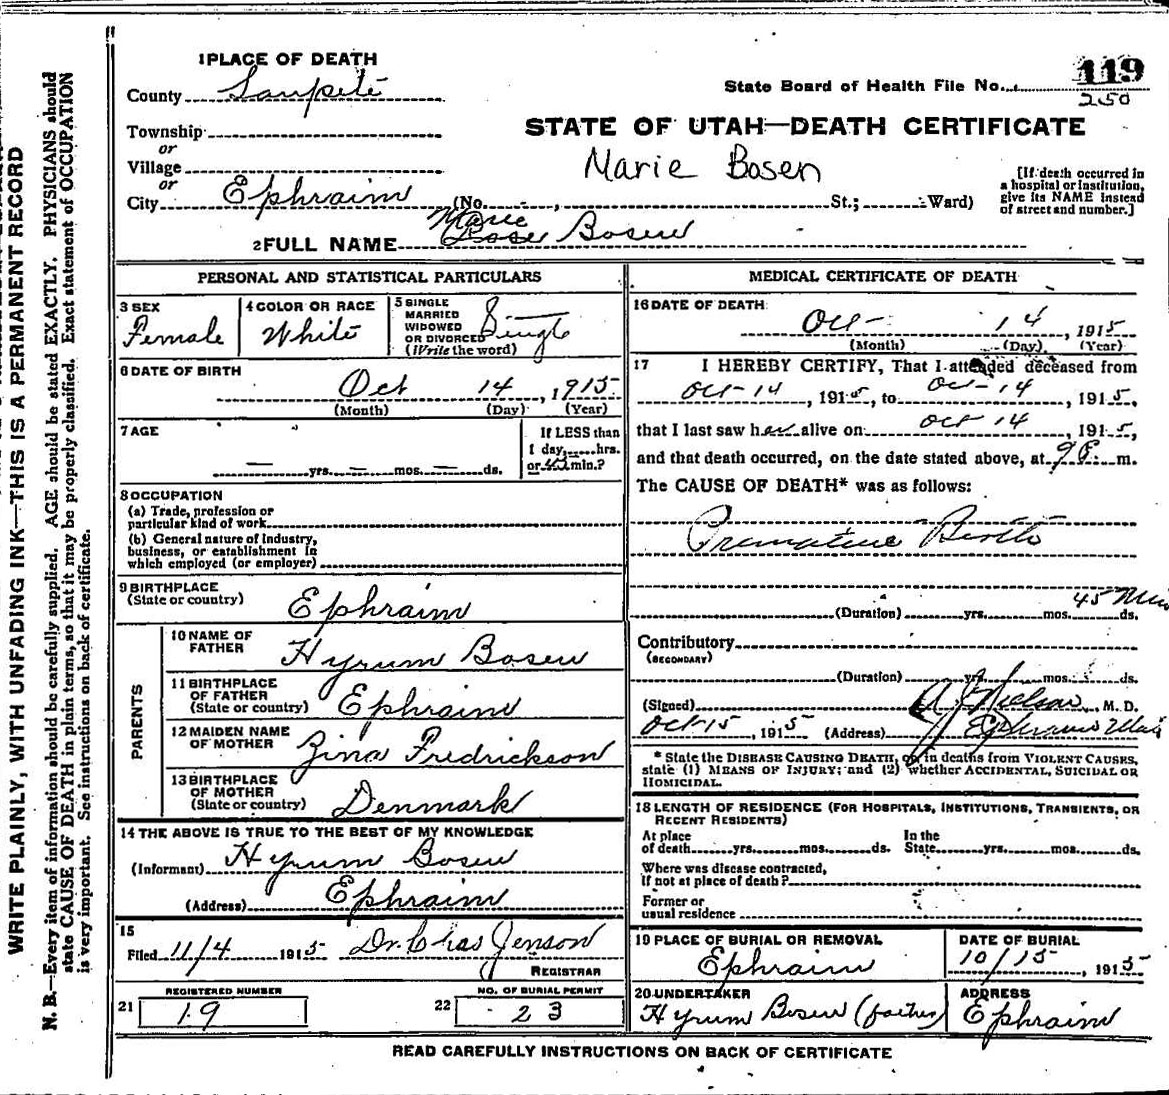 1 PLACE OF DEATH
County Sanpete
Township
or
Village
or
City Ephraim (No. - , St.; Ward)
State Board of Health File No. 119
250
STATE OF UTAH—DEATH CERTIFICATE
Marie Bosen
[If death occurred in
a hospital or institution,
give its NAME instead
of street and number.]
Marie
2 FULL NAME Bosen
PERSONAL AND STATISTICAL PARTICULARS
3 SEX
Female
4 COLOR OR RACE
White
5 SINGLE
MARRIED
WIDOWED
OR DIVORCED
(Write the word)
Single
6 DATE OF BIRTH
Oct 14, 1915
(Month) (Day) (Year)
7 AGE
— yrs. — mos. — ds.
If LESS than
1 day, hrs.
or 45 min.?
8 OCCUPATION
(a) Trade, profession or
particular kind of work
(b) General nature of industry,
business, or establishment in
which employed (or employer)
9 BIRTHPLACE
(State or country) Ephraim
PARENTS
10 NAME OF
FATHER Hyrum Bosen
11 BIRTHPLACE
OF FATHER
(State or country) Ephraim
12 MAIDEN NAME
OF MOTHER Zina Fredrickson
13 BIRTHPLACE
OF MOTHER
(State or country) Denmark
14 THE ABOVE IS TRUE TO THE BEST OF MY KNOWLEDGE
(Informant) Hyrum Bosen
(Address) Ephraim
15
Filed 11/4 1915 Dr. Chas Jenson
REGISTRAR
REGISTERED NUMBER
21 19
NO. OF BURIAL PERMIT
22 23
MEDICAL CERTIFICATE OF DEATH
16 DATE OF DEATH
Oct- 14, 1915
(Month) (Day) (Year)
17 I HEREBY CERTIFY, That I attended deceased from
Oct-14, 1915, to Oct-14, 1915,
that I last saw her alive on Oct 14, 1915,
and that death occurred, on the date stated above, at 9 P. m.
The CAUSE OF DEATH* was as follows:
Premature Birth
45 Min
(Duration) yrs. mos. ds.
Contributory
(SECONDARY)
(Duration) yrs. mos. ds.
(Signed) A J Nielson, M. D.
Oct-15, 1915 (Address) Ephraim Utah
* State the DISEASE CAUSING DEATH, or, in deaths from VIOLENT CAUSES,
state (1) MEANS OF INJURY; and (2) whether ACCIDENTAL, SUICIDAL OR
HOMICIDAL.
18 LENGTH OF RESIDENCE (FOR HOSPITALS, INSTITUTIONS, TRANSIENTS, OR
RECENT RESIDENTS)
At place
of death yrs. mos. ds.
In the
State yrs. mos. ds.
Where was disease contracted,
if not at place of death?
Former or
usual residence
19 PLACE OF BURIAL OR REMOVAL
Ephraim
DATE OF BURIAL
10/15, 1915
20 UNDERTAKER
Hyrum Bosen (father)
ADDRESS
Ephraim
READ CAREFULLY INSTRUCTIONS ON BACK OF CERTIFICATE
WRITE PLAINLY, WITH UNFADING INK—THIS IS A PERMANENT RECORD
N. B.—Every item of information should be carefully supplied. AGE should be stated EXACTLY. PHYSICIANS should
state CAUSE OF DEATH in plain terms, so that it may be properly classified. Exact statement of OCCUPATION
is very important. See instructions on back of certificate.